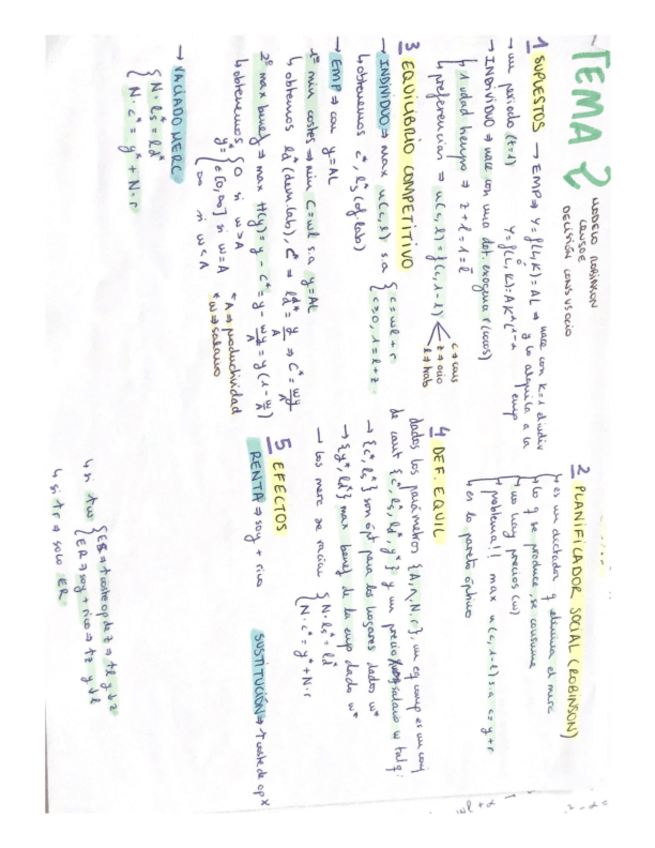 TEMA 2
MODELO ROBINSON
CRUSOE
DECISIÓN CONS VS OCIO
1 SUPUESTOS → EMP ⇒ Y = f(L,K) = AL ⇒ nace con k=1 el indiv
y lo alquila a la emp
→ un periodo (t=1)
Y = f(L,K) = AK^αL^1-α
→ INDIVIDUO ⇒ nace con una dot. exógena r (cocos)
1 udad tiempo ⇒ z + l = 1 = l̄
↳ preferencias ⇒ u(c,l) = f(c,1-l)
c ⇒ cons
z ⇒ ocio
l ⇒ trab
3 EQUILIBRIO COMPETITIVO
→ INDIVIDUO ⇒ max u(c,l) s.a { c = wl + r
c ≥ 0, 1 = l + z
↳ obtenemos c*, ls* (of. lab)
→ EMP ⇒ con y = AL
1º min costes ⇒ min C = wl s.a y = AL
↳ obtemos ld* (dem. lab), C* ⇒ ld* = y/A ⇒ C* = wy/A
2º max benef ⇒ max π(y) = y - C* = y - wy/A = y(1 - w/A)
↳ obtenemos y* = { 0 si w > A
∈[0,∞] si w = A
∞ si w < A
* A ⇒ productividad
* w ⇒ salario
→ VACIADO MERC
{ N·ls* = ld*
N·c* = y* + N·r
2 PLANIFICADOR SOCIAL (ROBINSON)
↳ es un dictador q elimina el merc
↳ lo q se produce, se consume
↳ no hay precios (w)
↳ problema!! max u(c,1-l) s.a c = y + r
↳ es lo pareto óptimo
4 DEF. EQUIL
dados los parámetros {A, N, r}, un eq comp es un conj
de cant {c*, ls*, ld*, y*} y un precio salario w tal q:
→ {c*, ls*} son ópt para los hogares dados w*
→ {y*, ld*} max benef de la emp dado w*
→ los merc se vacian { N·ls* = ld*
N·c* = y* + N·r
5 EFECTOS
RENTA ⇒ soy + rico
SUSTITUCIÓN ⇒ ↑ coste de op x
↳ si ↑w { ES ⇒ ↑ coste op de z ⇒ ↑l y ↓z
ER ⇒ soy + rico ⇒ ↑z y ↓l
↳ si ↑r ⇒ solo ER